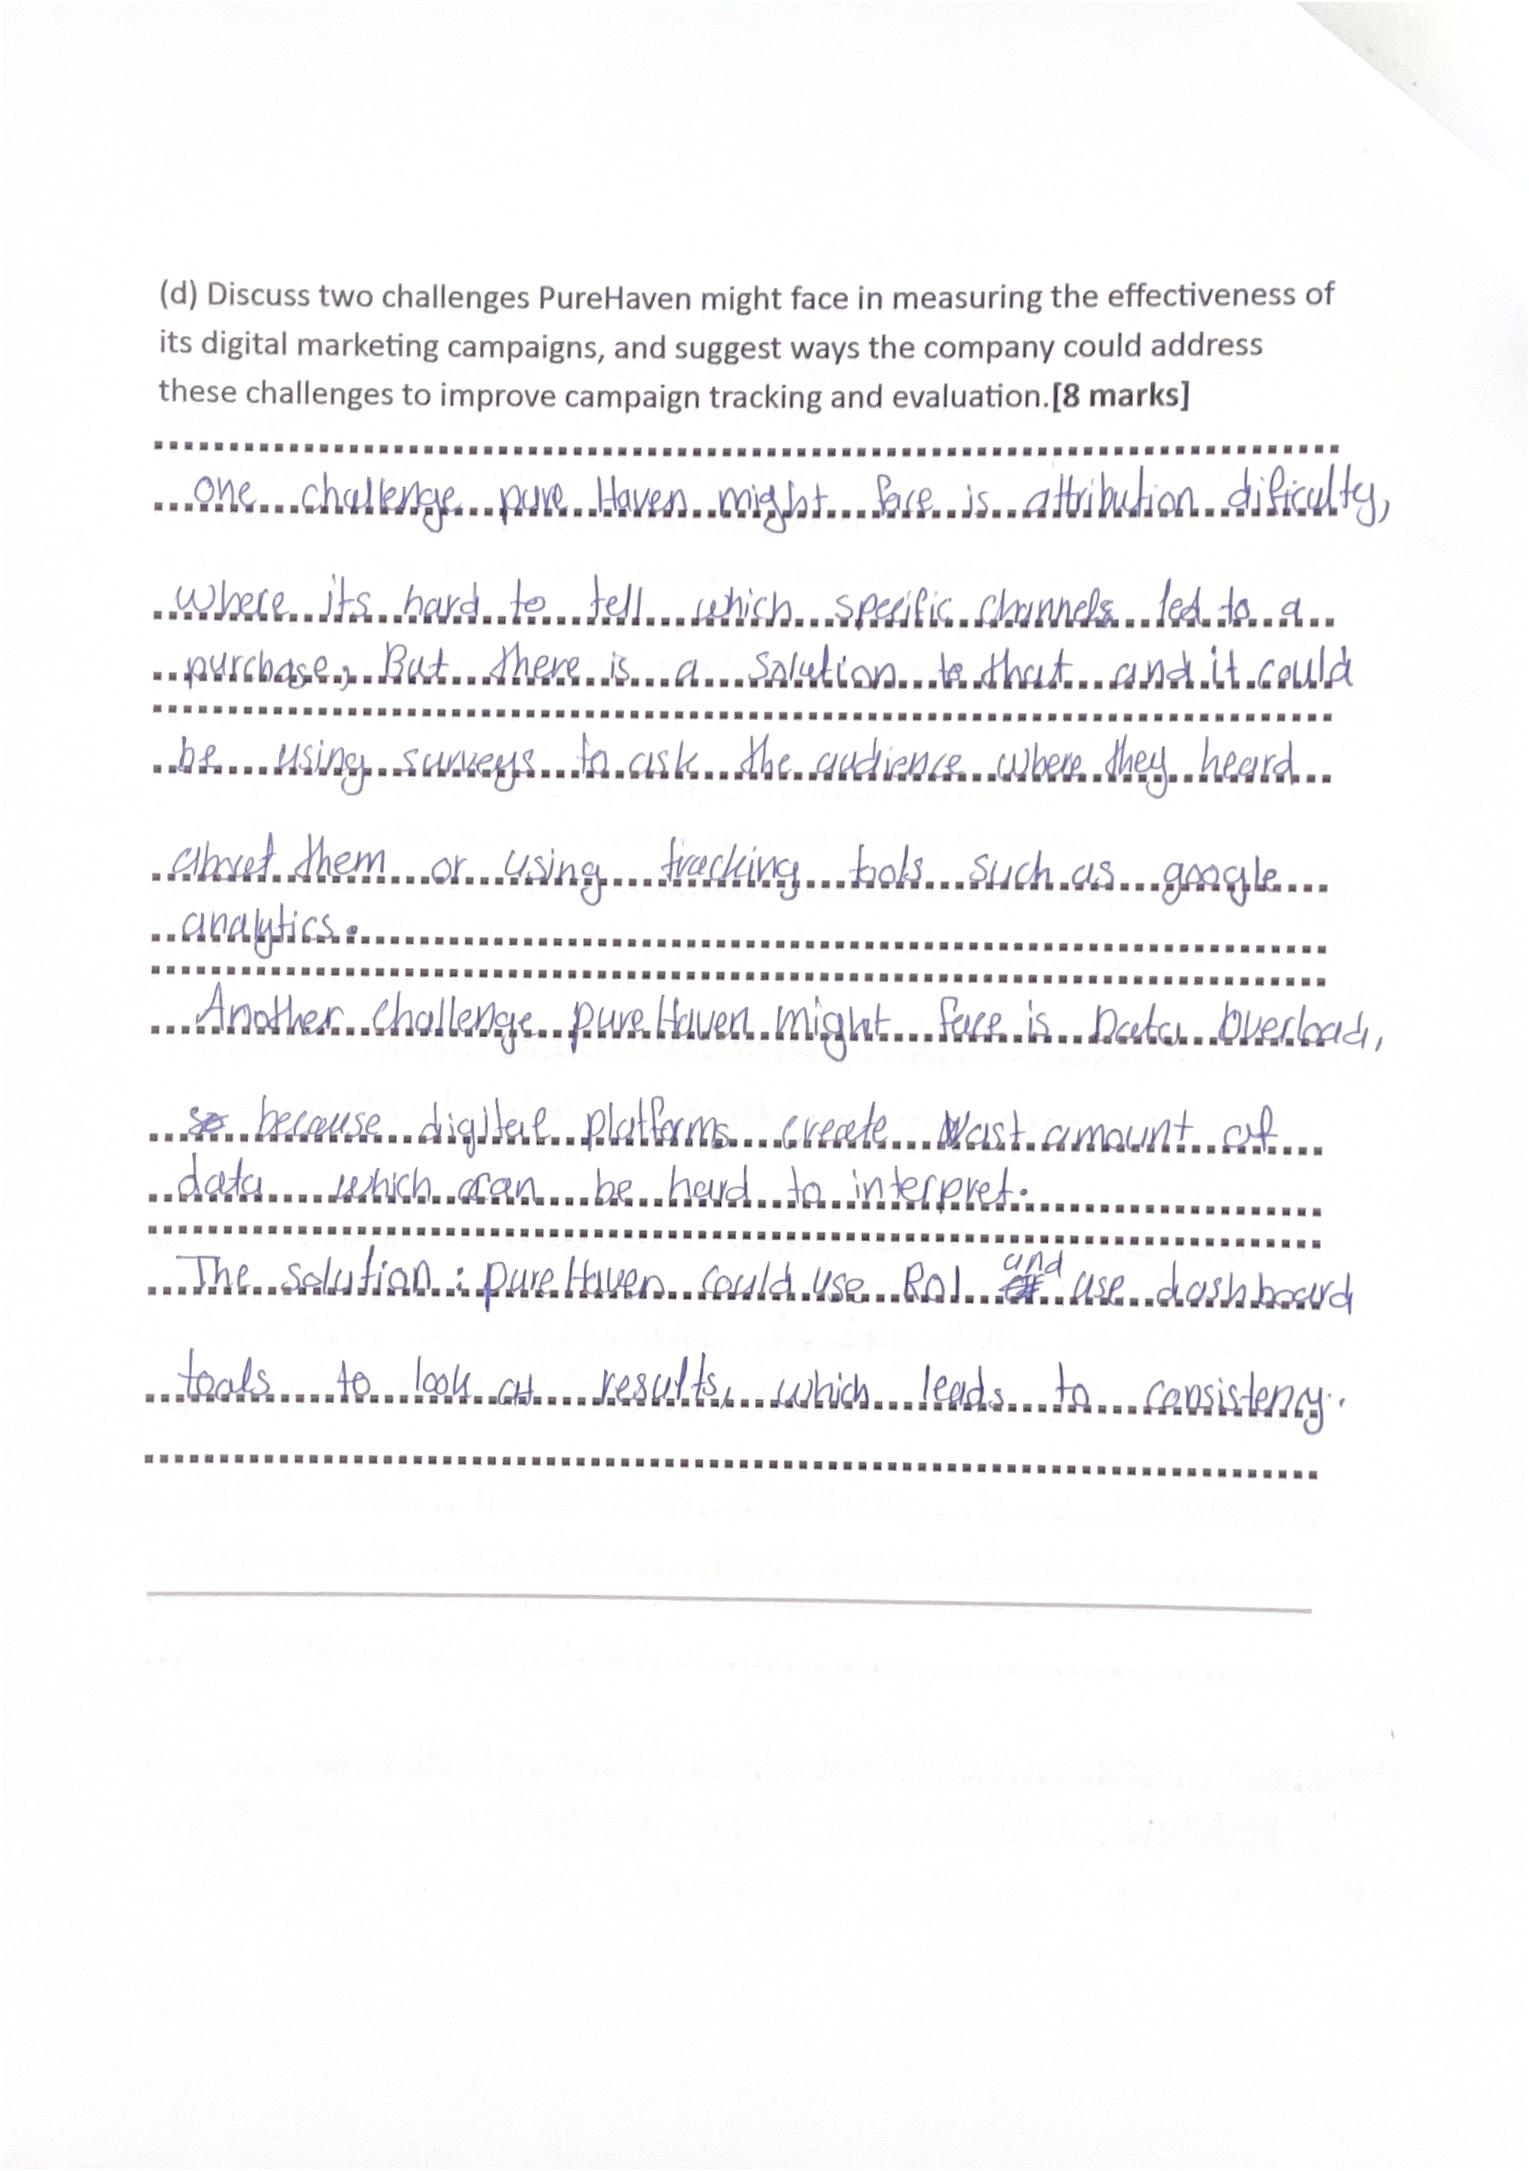 (d) Discuss two challenges PureHaven might face in measuring the effectiveness of
its digital marketing campaigns, and suggest ways the company could address
these challenges to improve campaign tracking and evaluation.[8 marks]
one challenge pure Haven might face is attribution dificulty,
where its hard to tell which specific channels led to a
purchase, But there is a solution to that and it could
be using surveys to ask the audience where they heard
about them or using tracking tools such as google
analytics.
Another challenge pure Haven might face is Data Overload,
because digital platforms create vast amount of
data which can be hard to interpret.
The solution : pure Haven could use ROI and use dashboard
tools to look at results, which leads to consistency.